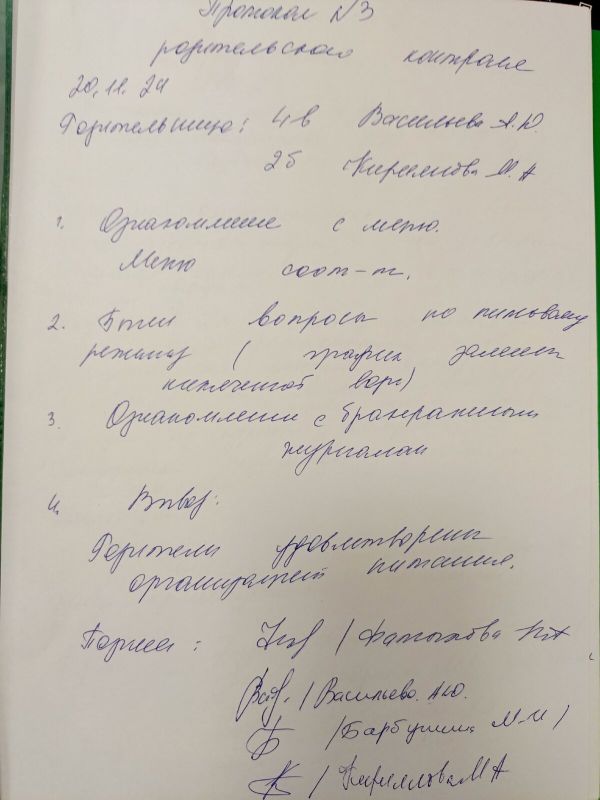 Протокол №3
родительского контроля
20.11.24
4в Васильева А.Ю.
2б Кириллова М.А
1. Ознакомление с меню.
Меню соот-т.
2. Были вопросы по питьевому
режиму (график замены
кипяченой воды)
3. Ознакомление с бракеражным
журналом
4. Вывод:
Родители удовлетворены
организацией питания.
Подписи: / Фатыхова
/ Васильева А.Ю.
/Барбушина М.И/
/ Кириллова М А